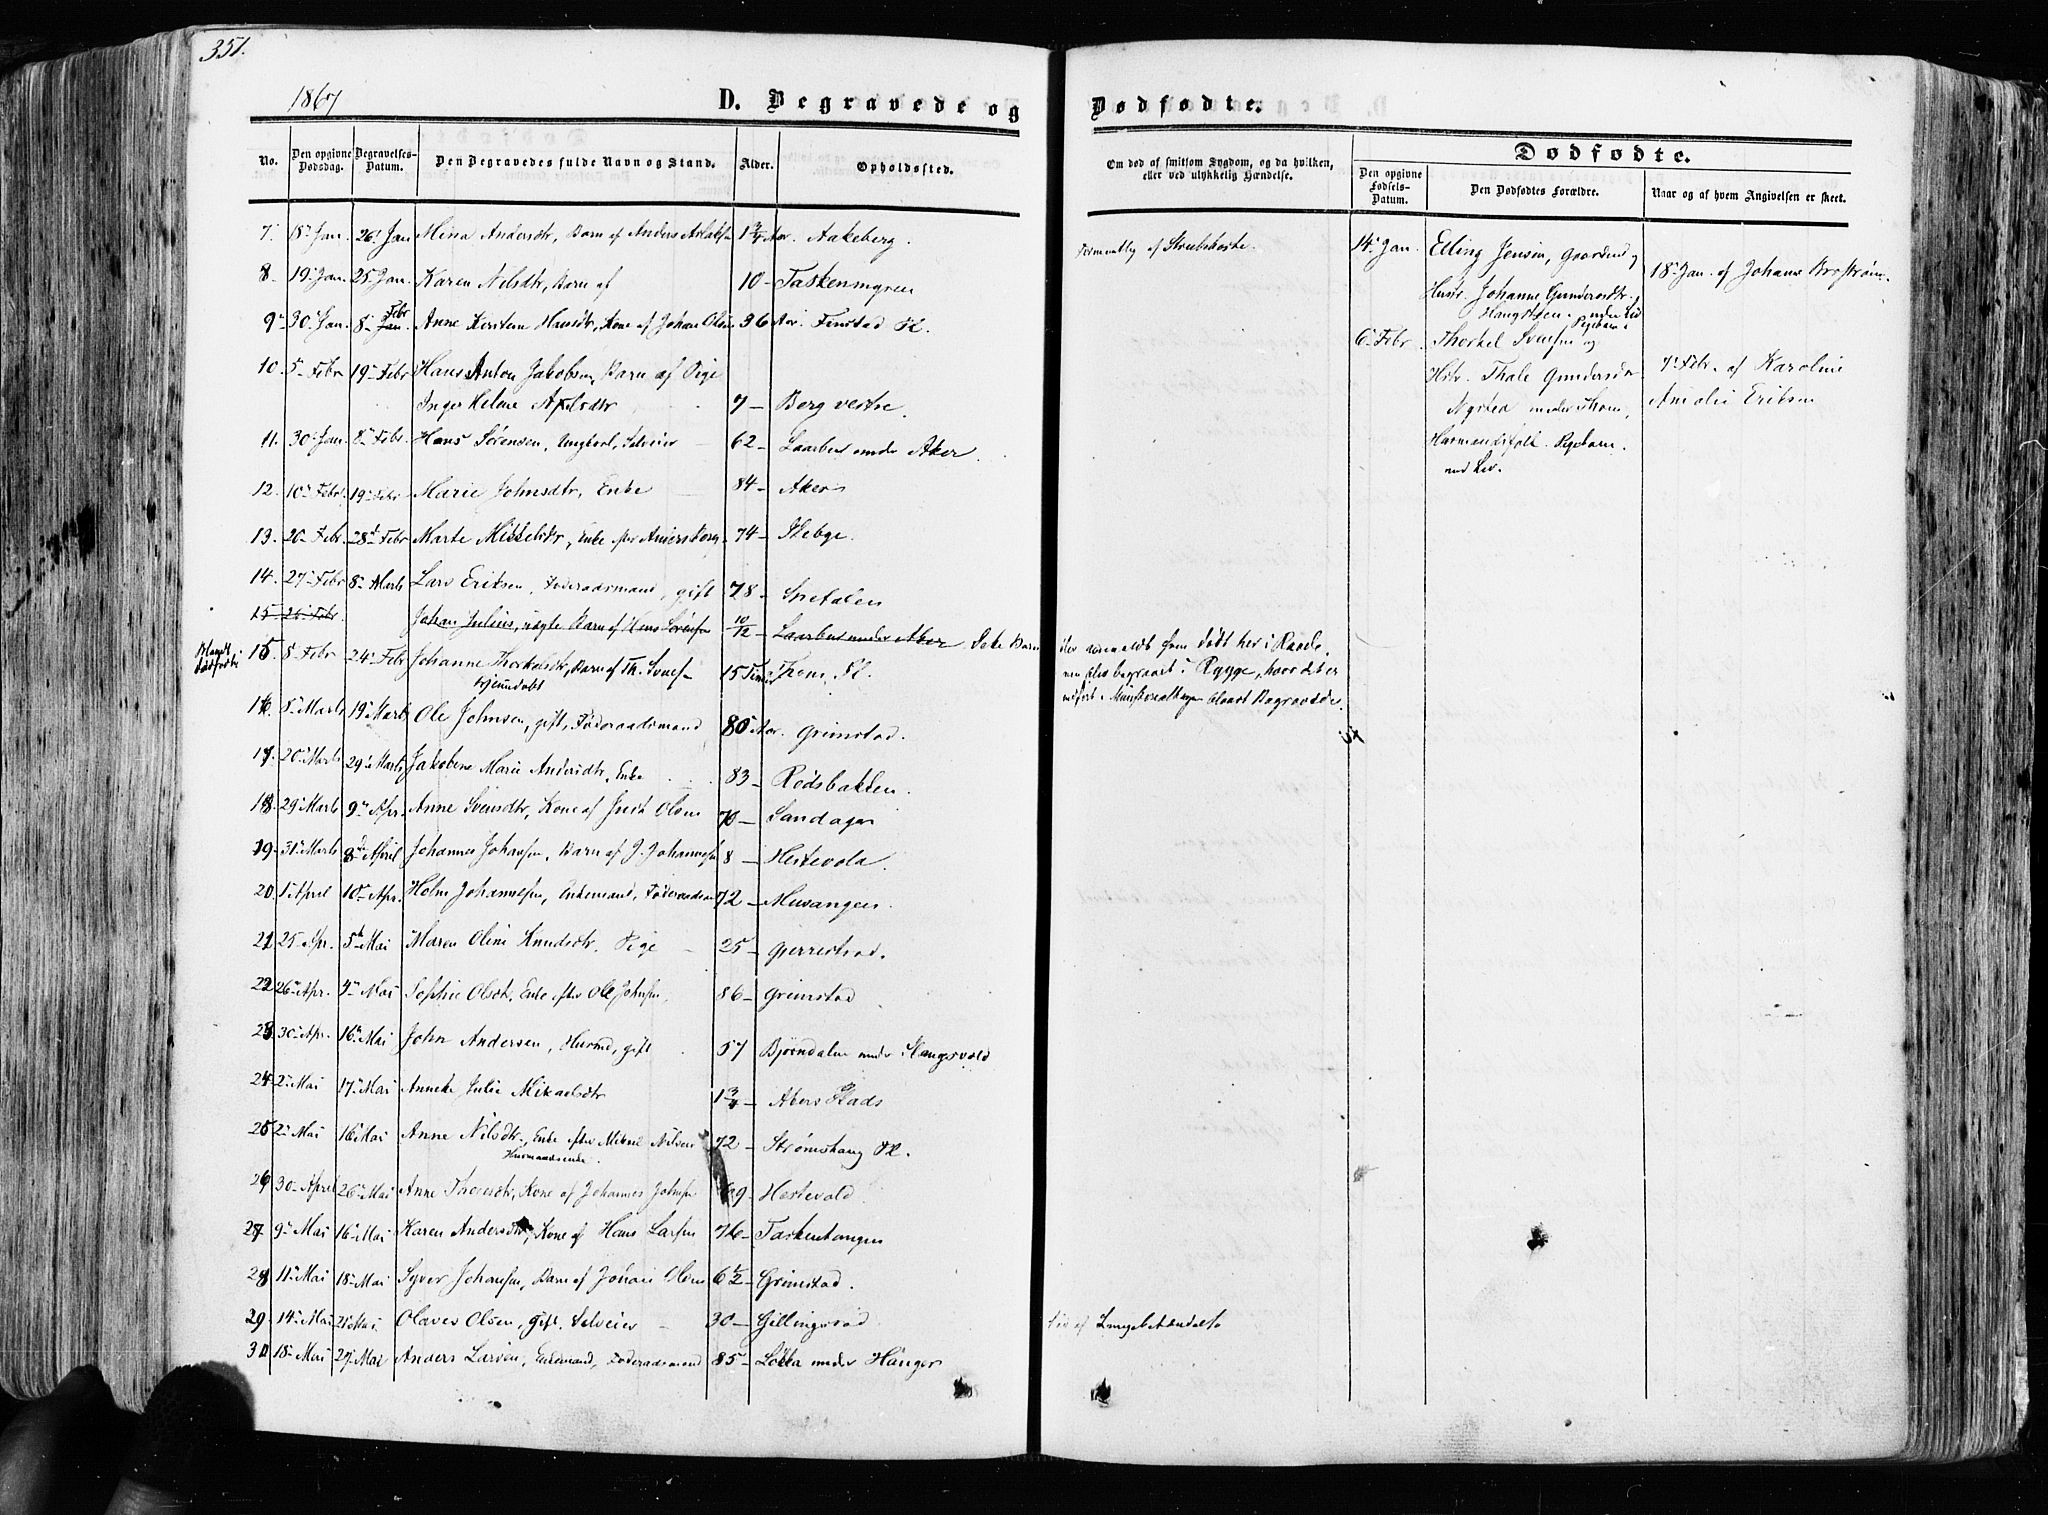 351.
1867
D. Begravede og
No. Den opgivne Dødsdag. Begravelses-Datum. Den Begravedes fulde Navn og Stand. Alder. Opholdssted.
7. 18 Jan. 26 Jan Mina Andersdtr, Barn af Anders 1 3/4 Aar. Aakeberg.
8. 19 Jan. 25 Jan. Karen Nilsdtr, Barn af 10 - Taskenmyren
9 30 Jan. 8 Febr Jan. Anne Kirstine Hansdtr, Kone af Johan Olsen 36 Aar. Finstad Pl.
10. 5 Febr 19 Febr Hans Anton Jakobsen, Barn af Pige
Inger Helene Axelsdtr 7 - Berg vestre.
11. 30 Jan 8 Febr. Hans Sørensen, Ungkarl, Selveier 62 - Laarbua under Aker.
12. 10 Febr. 19 Febr Marie Johnsdtr, Enke 84 - Aker
13. 20 Febr. 28 Febr Marte Mikkelsdtr, Enke efter Anders Borg 74 - Skebye.
14. 27 Febr 8 Marts Lars Eriksen, Føderaadsmand, gift 78 - Snetalen
15 26 Febr. Johan Julius, uægte Barn af Hans Sørensen 10/12 Laarbua under Aker Dette Barn
Blandt dødfødte
15 8 Febr 24 Febr Johanne Thorkelsdtr, Barn af Th. Svensen 15 Timer Thom Pl.
hjemmedøbt
16. 8 Marts 19 Marts Ole Johnsen, gift, Føderaadsmand 80 Aar. Grimstad.
17. 20 Marts 29 Marts Jakobine Marie Andersdtr, Enke 83 - Rødsbakken.
18. 29 Marts 9 Apr. Anne Svensdtr, Kone af Olsen 70 - Sandager
19. 31 Marts 8 April Johannes Johansen, Barn af J. Johannesen 8 - Hestevold.
20. 1 April 10 Apr. Holm Johannesen, Enkemand, Føderaadsm 72 - Musangen.
21 25 Apr. 5 Mai Maren Oline Knudsdtr, Pige 25 - Gjerrestad.
22 26 Apr. 4 Mai Sophie Olsdtr, Enke efter Ole Johnsen, 86 - Grimstad
23 30 Apr. 16 Mai John Andersen, Husmd, gift 57 Bjørndalen under Haugsvold
24 2 Mai 17 Mai Anneke Julie Mikaelsdtr 1 3/4 - Akers Plads
25 2 Mai 16 Mai Anne Nilsdtr, Enke efter Mikael Nilsen 72 - Strømshaug Pl.
Husmandsenke.
26 30 April 26 Mai Anne Thoresdtr, Kone af Johannes Johnsen 69 - Hestevold.
27 9 Mai 16 Mai Karen Andersdtr, Kone af Hans Larsen 76 - Taskentangen
28 11 Mai 18 Mai Syver Johansen, Barn af Johan Olsen 6 1/2 - Grimstad.
29. 14 Mai 21 Mai. Olaves Olsen, gift, Selveier 30 - Gillingsrød
30 18 Mai 27 Mai Anders Larsen, Enkemand, Føderaadsmand 85 - Løkka under Hanger
Dødfødte.
Om død af smitsom Sygdom, og da hvilken, eller ved ulykkelig Hændelse.
Dødfødte.
Den opgivne Fødsels-Datum. Den Dødfødtes Forældre. Naar og af hvem Angivelsen er skeet.
Formentlig af Strubehoste.
er anmeldt som dødt her i Raade,
men blev begravet i Rygge, hvor det er
indført i Ministerialbogen blandt Begravede.
Død af Lungebetændelse
14 Jan. Elling Jensen, Gaardmd og
Hustr. Johanne Gundersdtr.
Haugsten. under Lid
Pigebarn
18 Jan. af Johanne Borstrøm
6 Febr. Thorkel Svensen og
Hstr. Thale Gundersdtr
Nystea under Thom,
Husmandsfolk. Pigebarn.
med Lev.
7 Febr. af Karoline
Amalie Eriksen